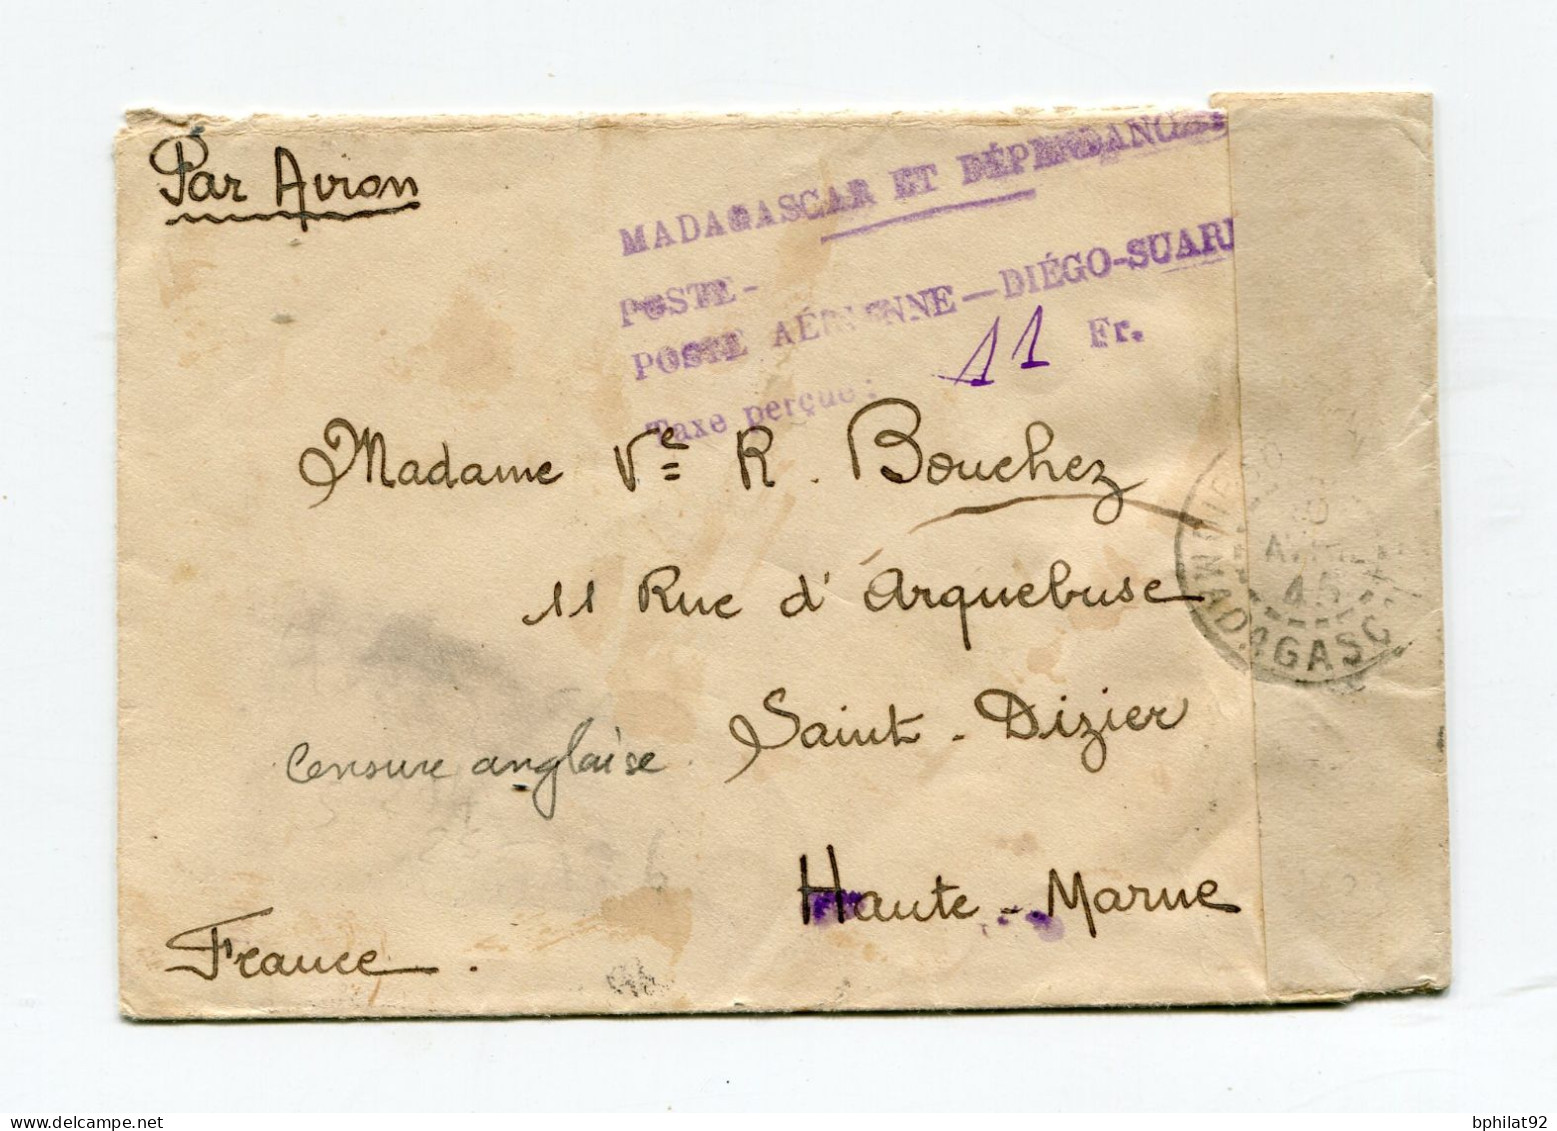 Par Avion
MADAGASCAR ET DÉPENDANCES
POSTE-
POSTE AÉRIENNE—DIÉGO-SUAR
Taxe perçue : 11 Fr.
Madame Vᵉ R. Bouchez
11 Rue d'Arquebuse
Saint-Dizier
Censure anglaise
Haute-Marne
France.
AVRIL
45
MADAGASC
bphilat92